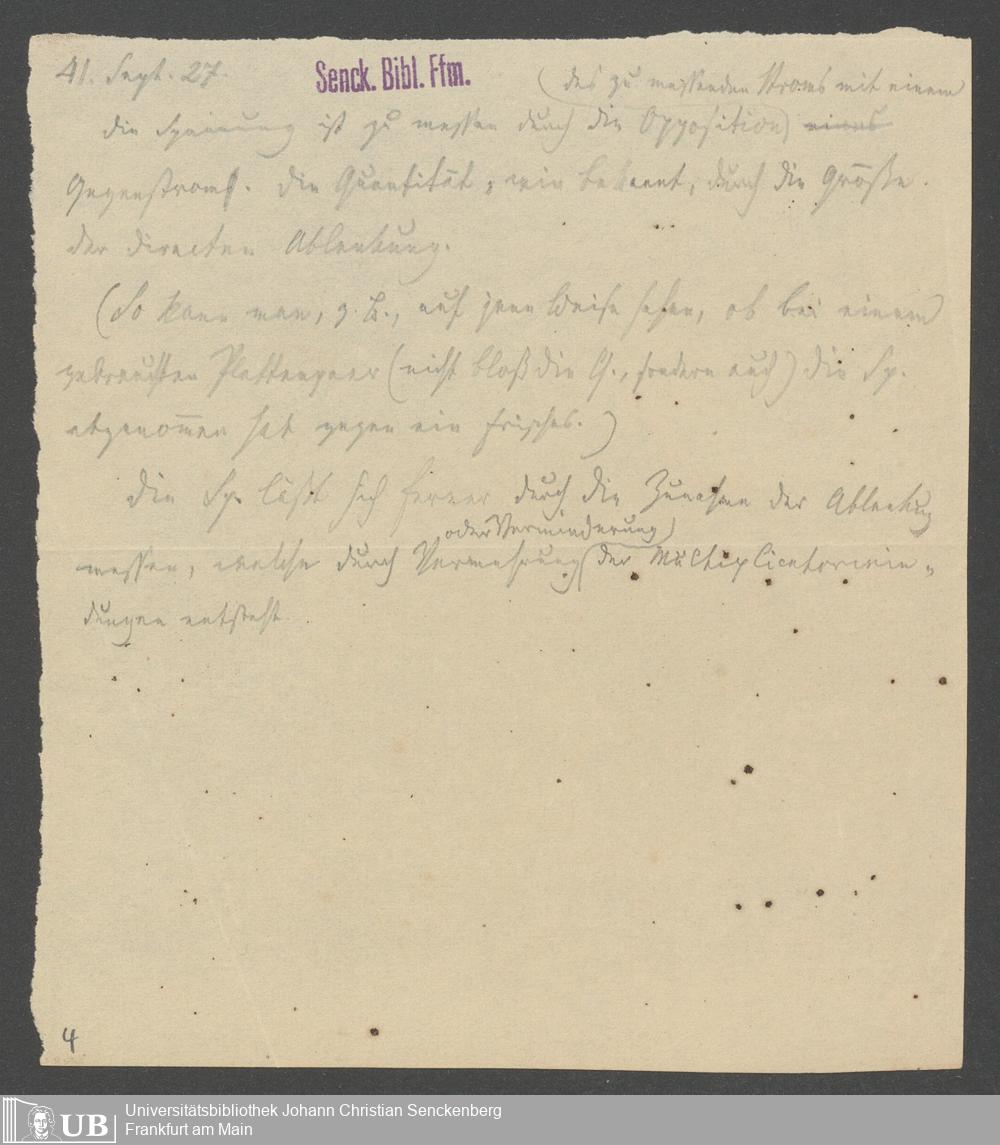 41. Sept. 27.
Senck. Bibl. Ffm.
(des zu messenden Stroms mit einem
Die Spannung ist zu messen durch die Opposition) eines
Gegenstroms. Die Quantität, wie bekannt, durch die Größe
der directen Ablenkung.
(So kann man, z. B., auf jene Weise sehen, ob bei einem
gebrauchten Plattenpaar (nicht bloß die Q., sondern auch) die Sp.
abgenommen hat gegen ein frisches.)
Die Sp. läßt sich ferner durch die Zunahme der Ablenkung
oder Verminderung)
messen, welche durch Vermehrung (der Multiplicatorwin-
dungen entsteht.
4
UB
Universitätsbibliothek Johann Christian Senckenberg
Frankfurt am Main